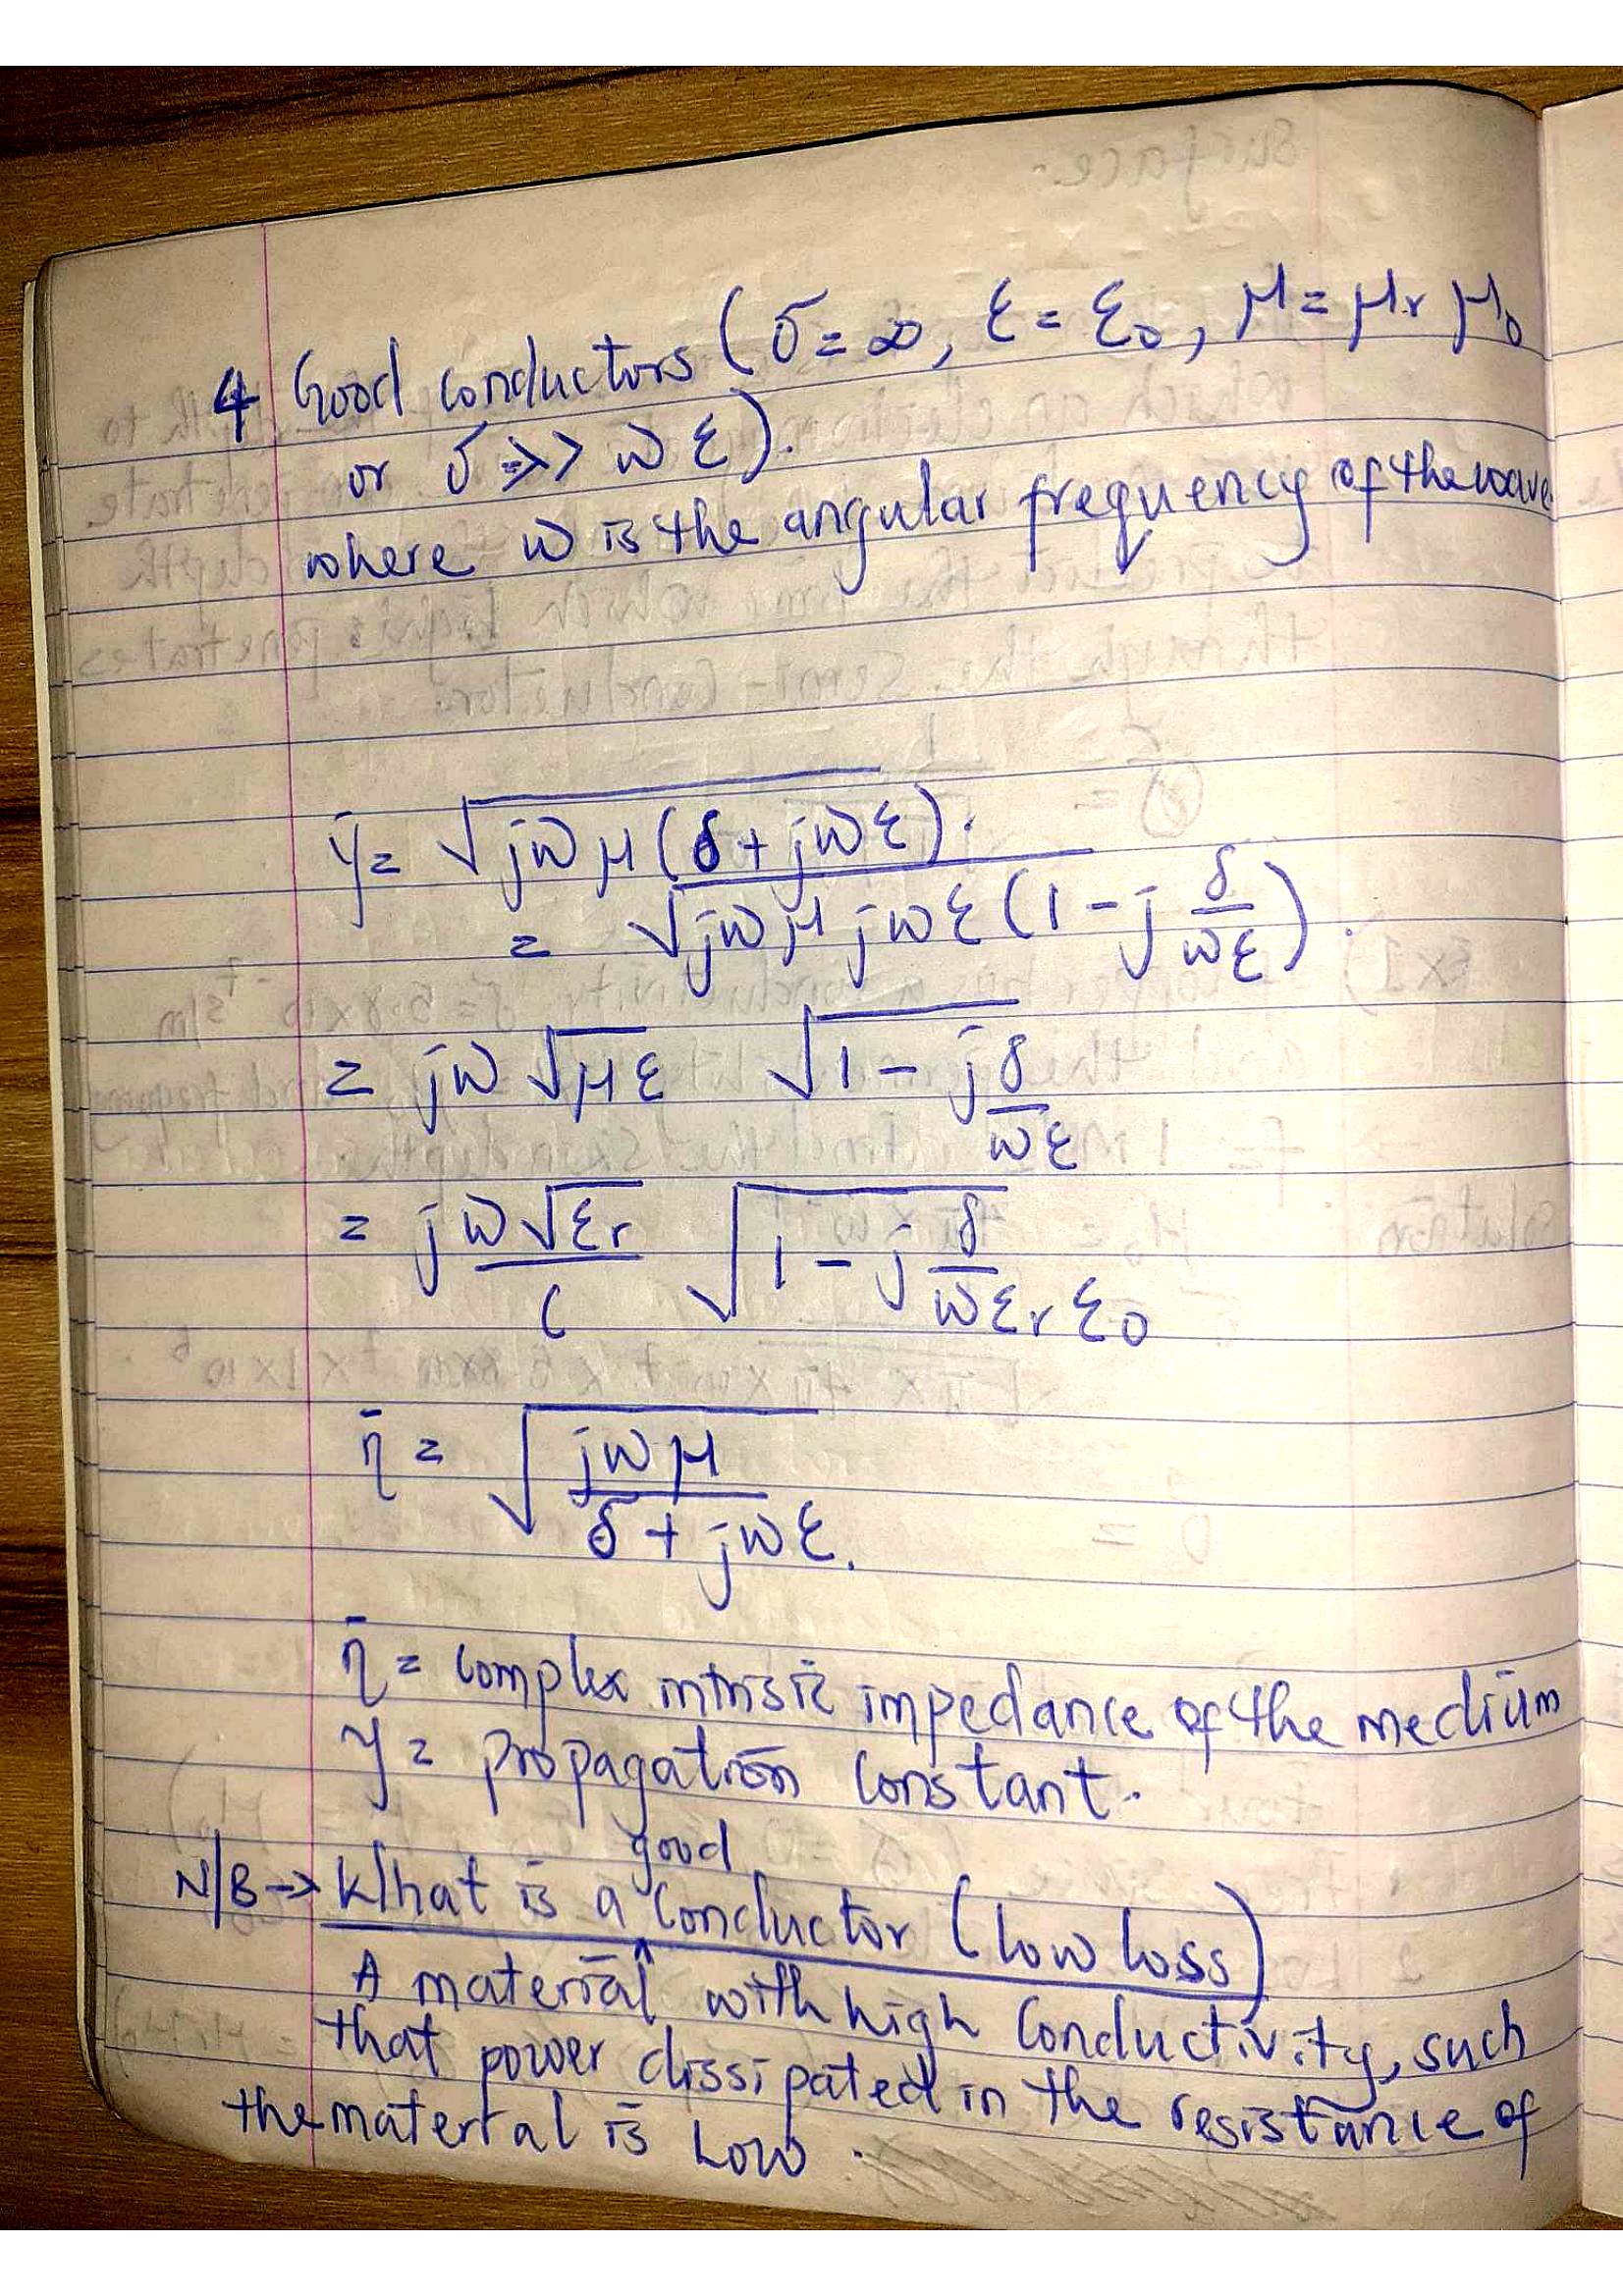 4 Good conductors (σ = ∞, ε = ε₀, μ = μr μ₀
or σ >> ω ε).
where ω is the angular frequency of the wave
γ̄ = √(jωμ(σ + jωε)).
= √(jωμ jωε(1 - j σ/ωε)).
= jω √με √(1 - j σ/ωε)
= jω√εr / c √(1 - j σ/ωεrε0)
η̄ = √(jωμ / σ + jωε).
η̄ = complex intrisic impedance of the medium
γ = propagation constant.
N/B → What is a good conductor (low loss)
A material with high conductivity, such
that power dissipated in the resistance of
the material is Low.